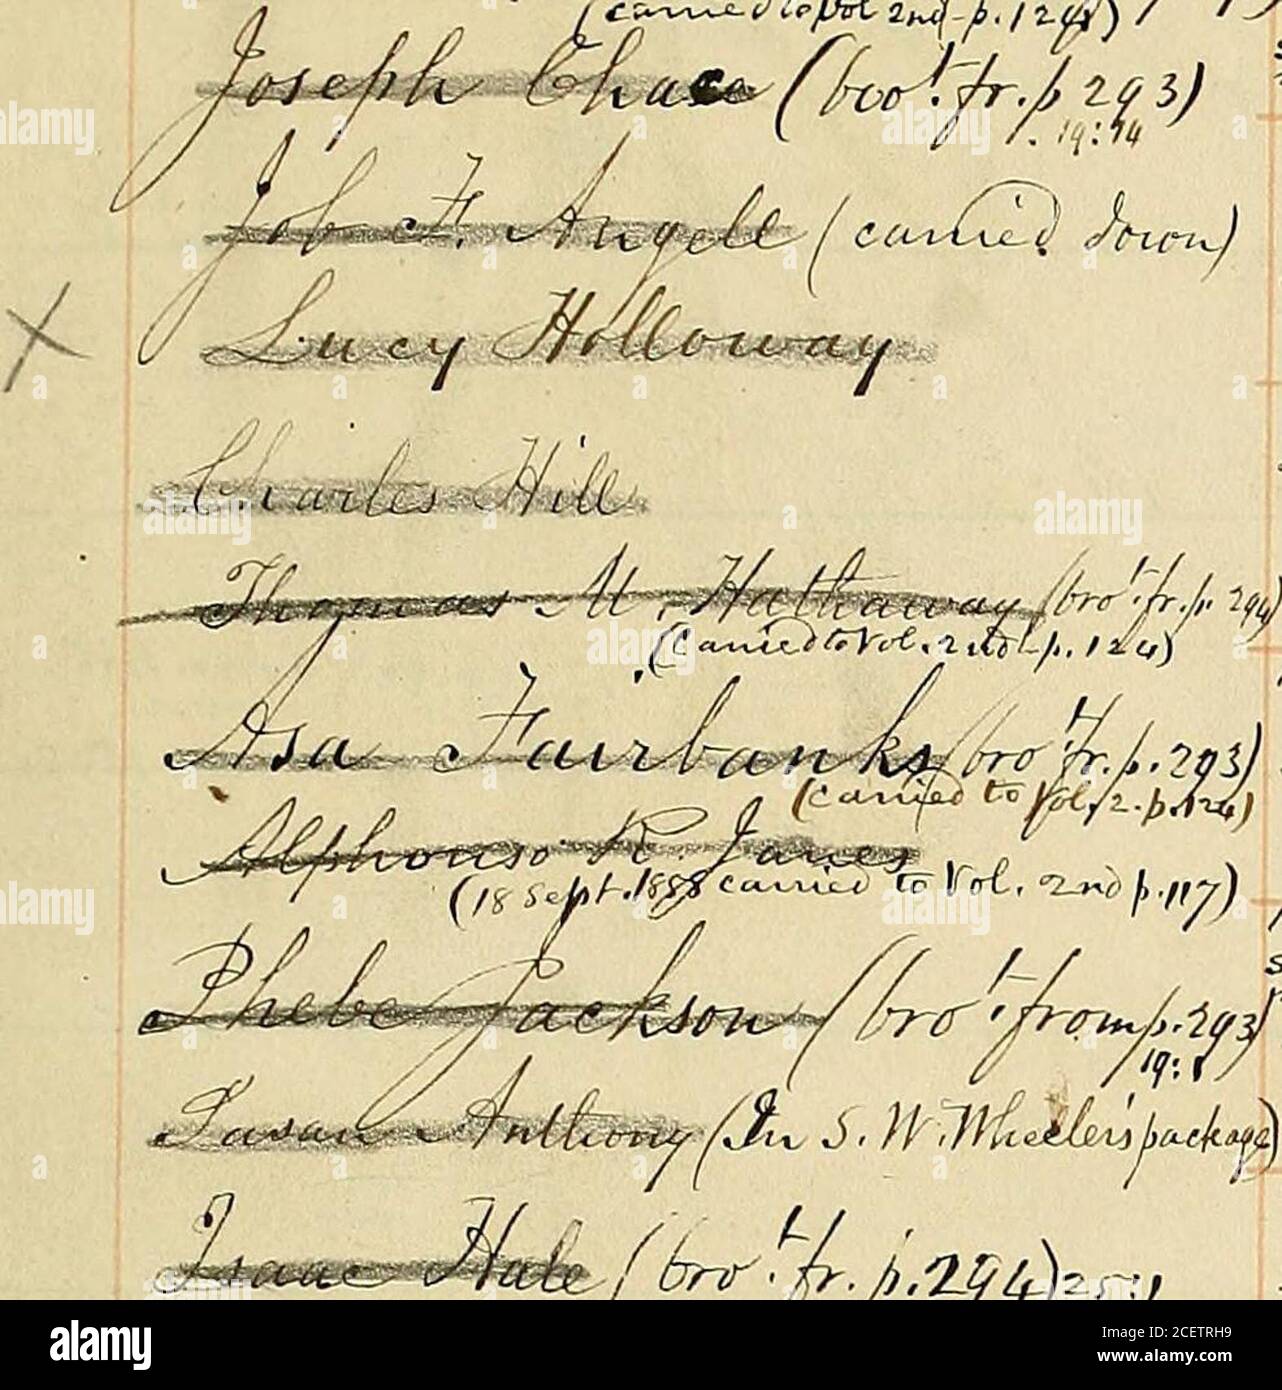 (carried to Vol 2nd - p. 124)
Joseph Chace (bro't. fr. p 293)
19:14
Job F. Angell (carried down)
Lucy Holloway
Charles Hill
Thomas M. Hathaway (bro't. fr. p. 294)
(Carried to Vol. 2nd - p. 124)
Asa Fairbanks (bro't fr. p. 293)
(carried to Vol. 2. p. 124)
Alphonso R. Janes
(18 Sept. 1888 carried to Vol. 2nd p. 117)
Phebe Jackson (bro't from p. 293)
19:1
Susan Anthony (In S. W. Wheeler's package)
Isaac Hale (bro't. fr. p. 294)
alamy
Image ID: 2CETRH9
www.alamy.com